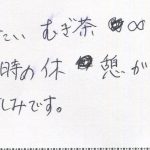 たい むぎ茶 ∞
時の休憩が
しみです。